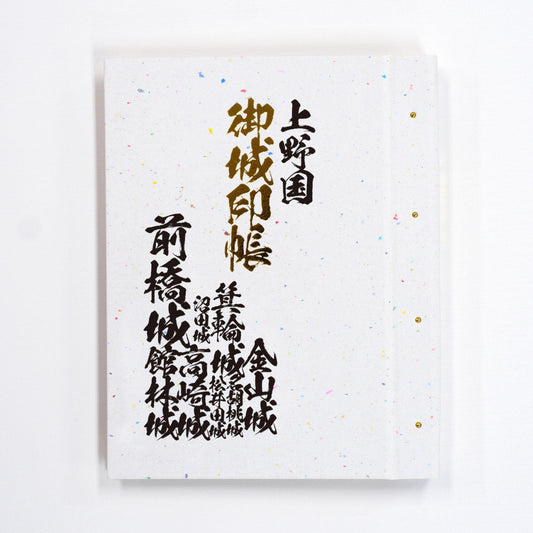 上野国
御城印帳
金山城
箕輪城
名胡桃城
松井田城
沼田城
高崎城
前橋城
館林城